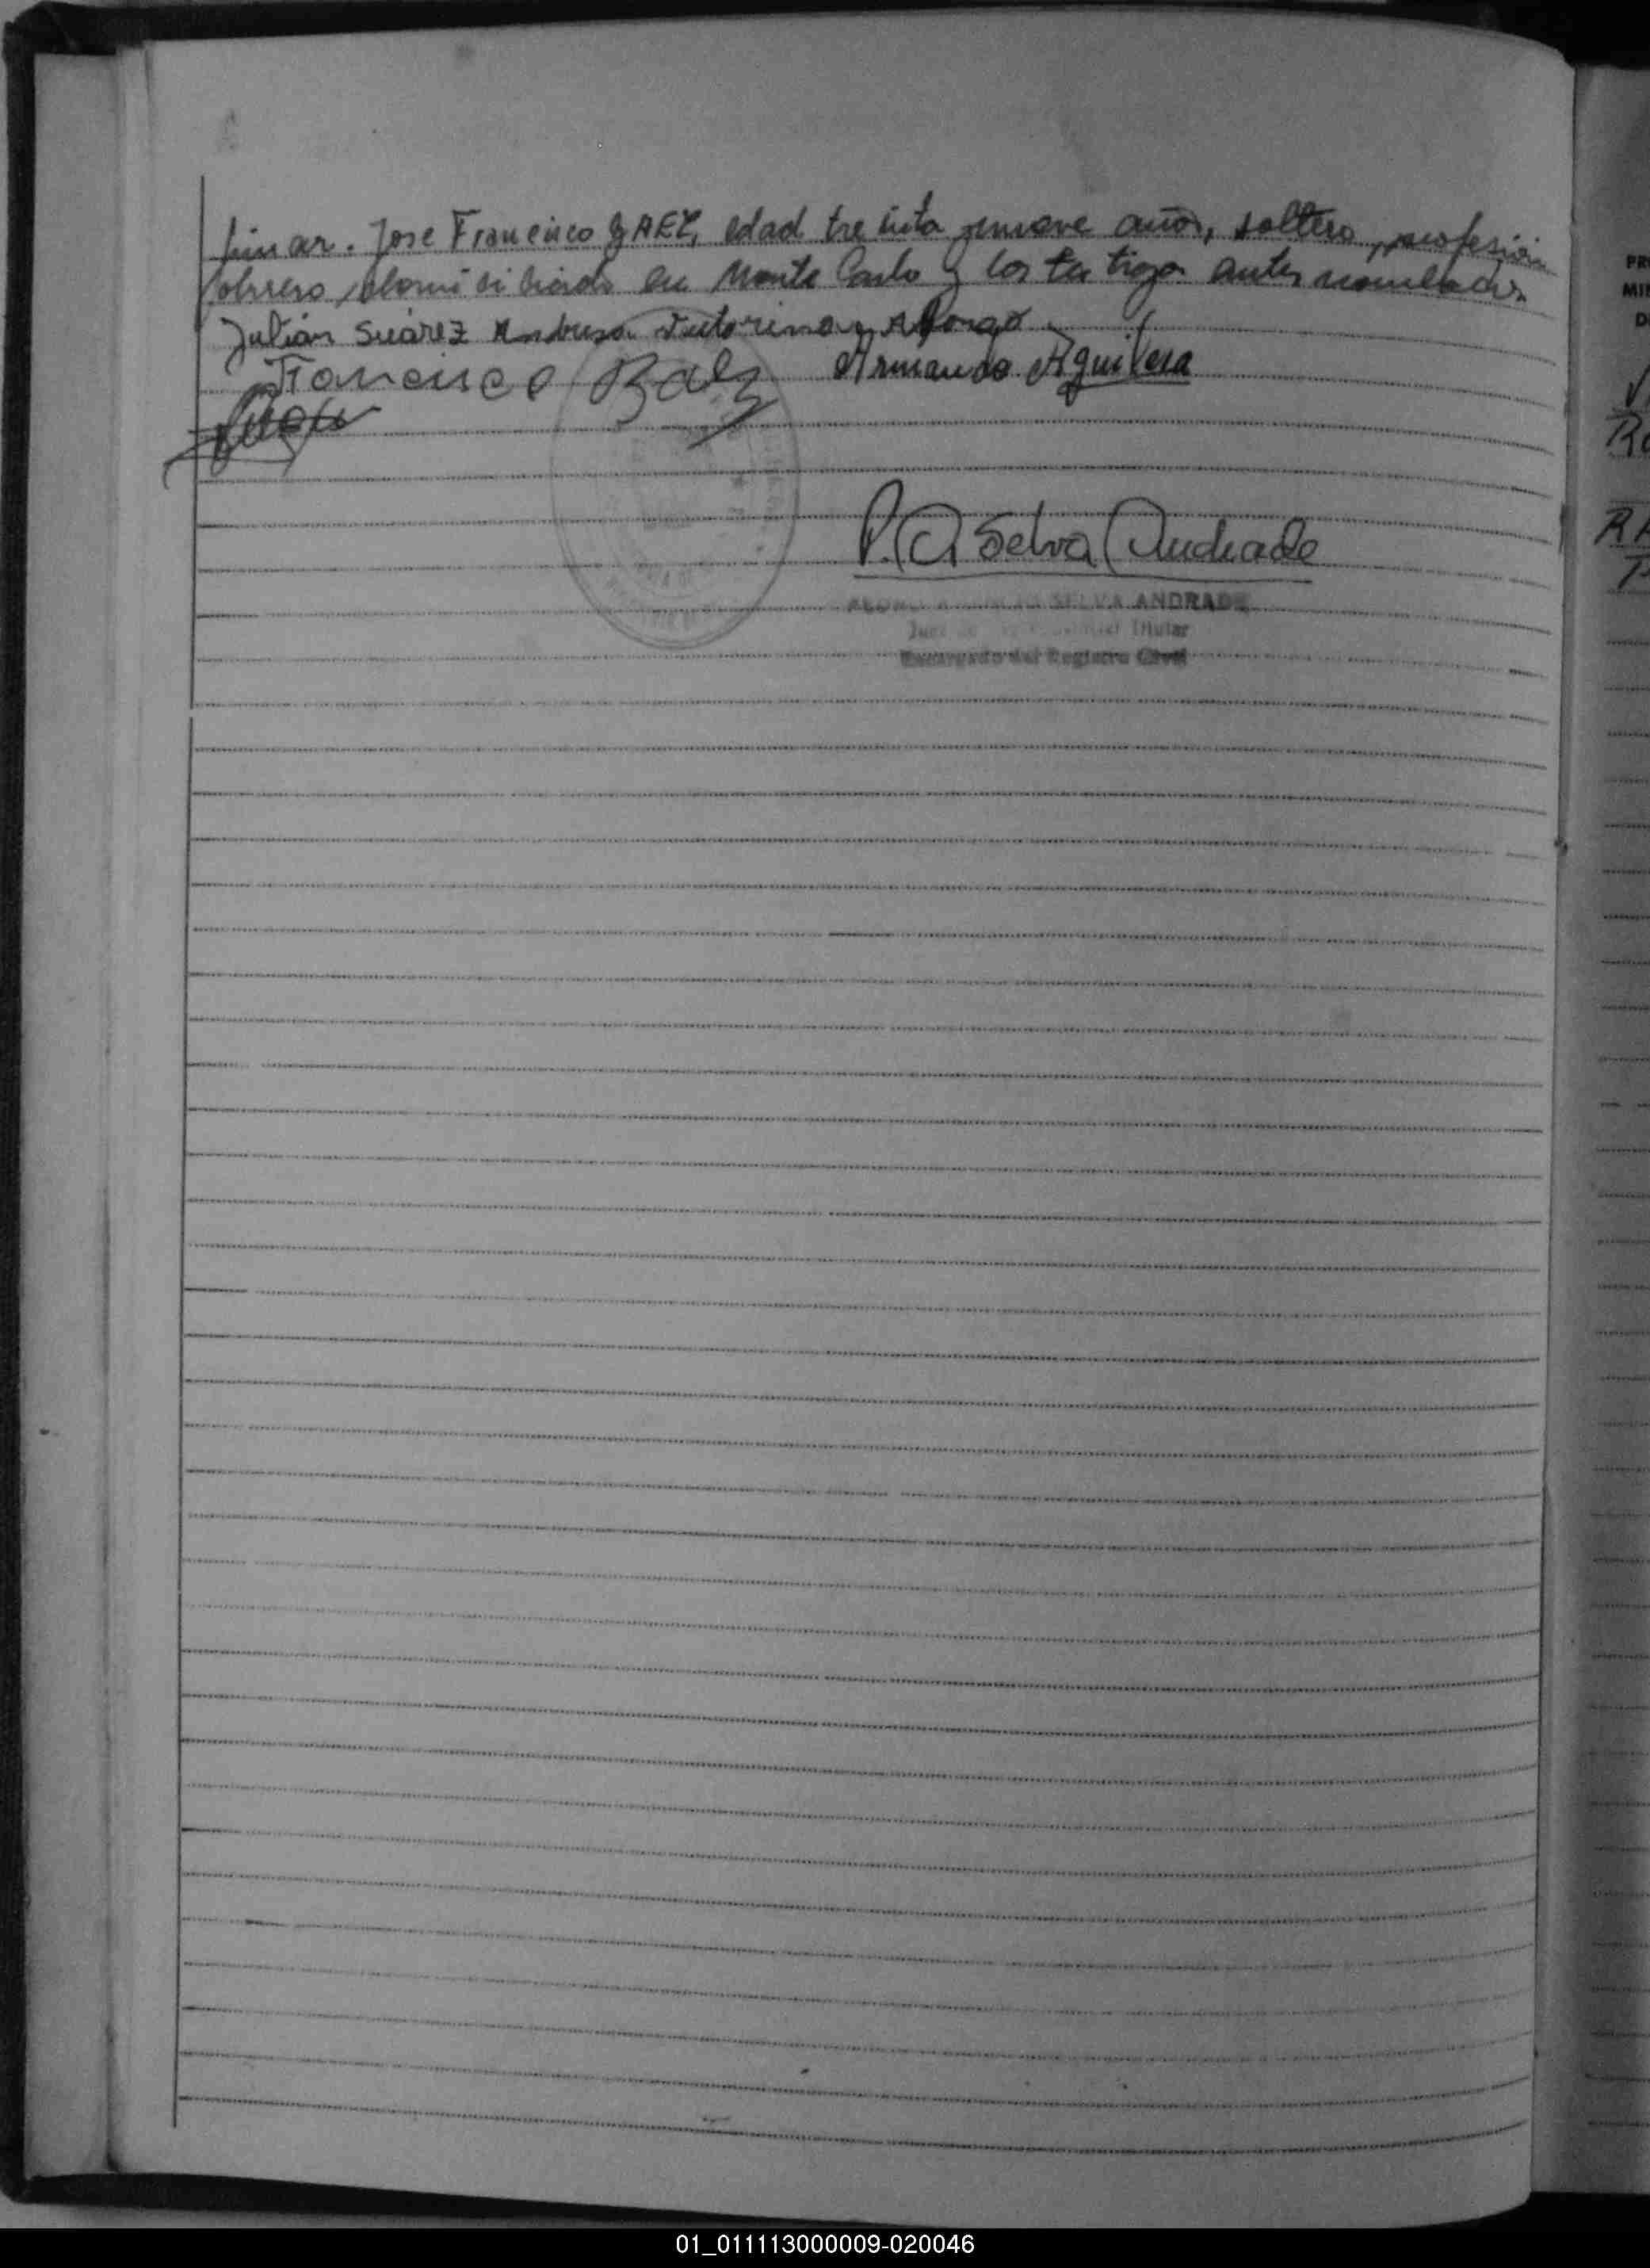 firmar. Jose Francisco BAEZ, edad treinta y nueve años, soltero, profesión
obrero, domiciliado en Monte Carlo y los testigos antes nombrados
Julián Suárez
Francisco Baez Armando Aguilera
P. A Selva Andrade
SELVA ANDRADE
Titular
Encargado del Registro Civil
PR
MI
D
RA
01_011113000009-020046